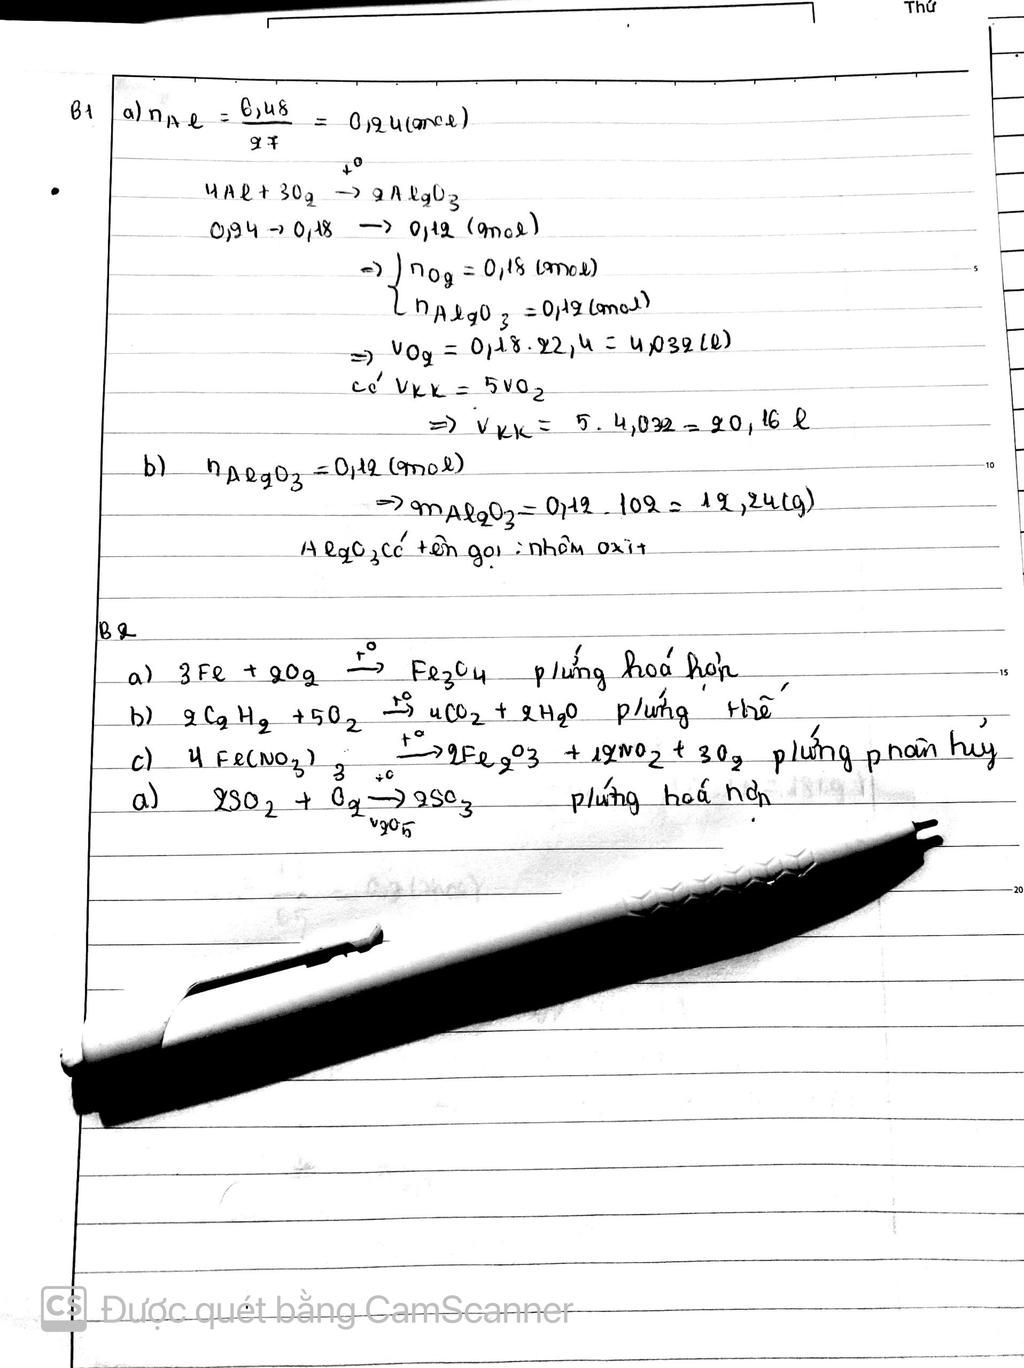 Thứ
B1 a) nAl = 6,48/27 = 0,24 (mol)
4Al + 3O2 t° → 2Al2O3
0,24 → 0,18 → 0,12 (mol)
=> { nO2 = 0,18 (mol)
nAl2O3 = 0,12 (mol)
=> VO2 = 0,18 . 22,4 = 4,032 (l)
có VKK = 5VO2
=> VKK = 5 . 4,032 = 20,16 l
b) nAl2O3 = 0,12 (mol)
=> mAl2O3 = 0,12 . 102 = 12,24 (g)
Al2O3 có tên gọi : nhôm oxit
B2
a) 3Fe + 2O2 t° → Fe3O4 p/ứng hoá hợp
b) 2C2H2 + 5O2 t° → 4CO2 + 2H2O p/ứng thế
c) 4Fe(NO3)3 t° → 2Fe2O3 + 12NO2 + 3O2 p/ứng phân hủy
d) 2SO2 + O2 t° → V2O5 2SO3 p/ứng hoá hợp
5
10
15
20
CS Được quét bằng CamScanner